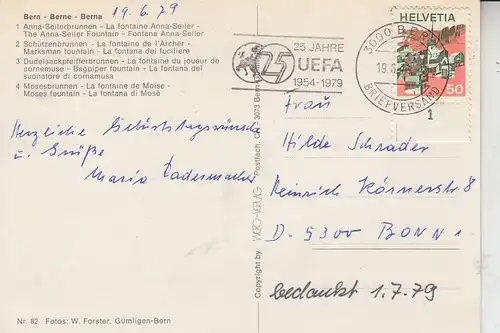 Bern - Berne - Berna
19.6.79
1 Anna-Seilerbrunnen - La fontaine Anna-Seiler -
The Anna-Seiler Fountain - Fontana Anna-Seiler
2 Schützenbrunnen - La fontaine de l'Archer -
Marksman fountain - La fontana del fuciliere
3 Dudelsackpfeifferbrunnen - La fontaine du joueur de
cornemuse - Bagpiper fountain - La fontana del
suonatore di cornamusa
4 Mosesbrunnen - La fontaine de Moïse -
Moses fountain - La fontana di Mosè
25 JAHRE
25 UEFA
1954-1979
3000 BERN
19.6.
BRIEFVERSAND
HELVETIA
50
1
Herzliche Geburtstagswünsche
u. Grüße
Maria Radermacher
Frau
Hilde Schrader
Heinrich Körnerstr 8
D-5300 BONN 1
bedankt 1.7.79
Copyright by
Postfach, CH-3073 Bern
Nr. 82 Fotos: W. Forster, Gümligen-Bern